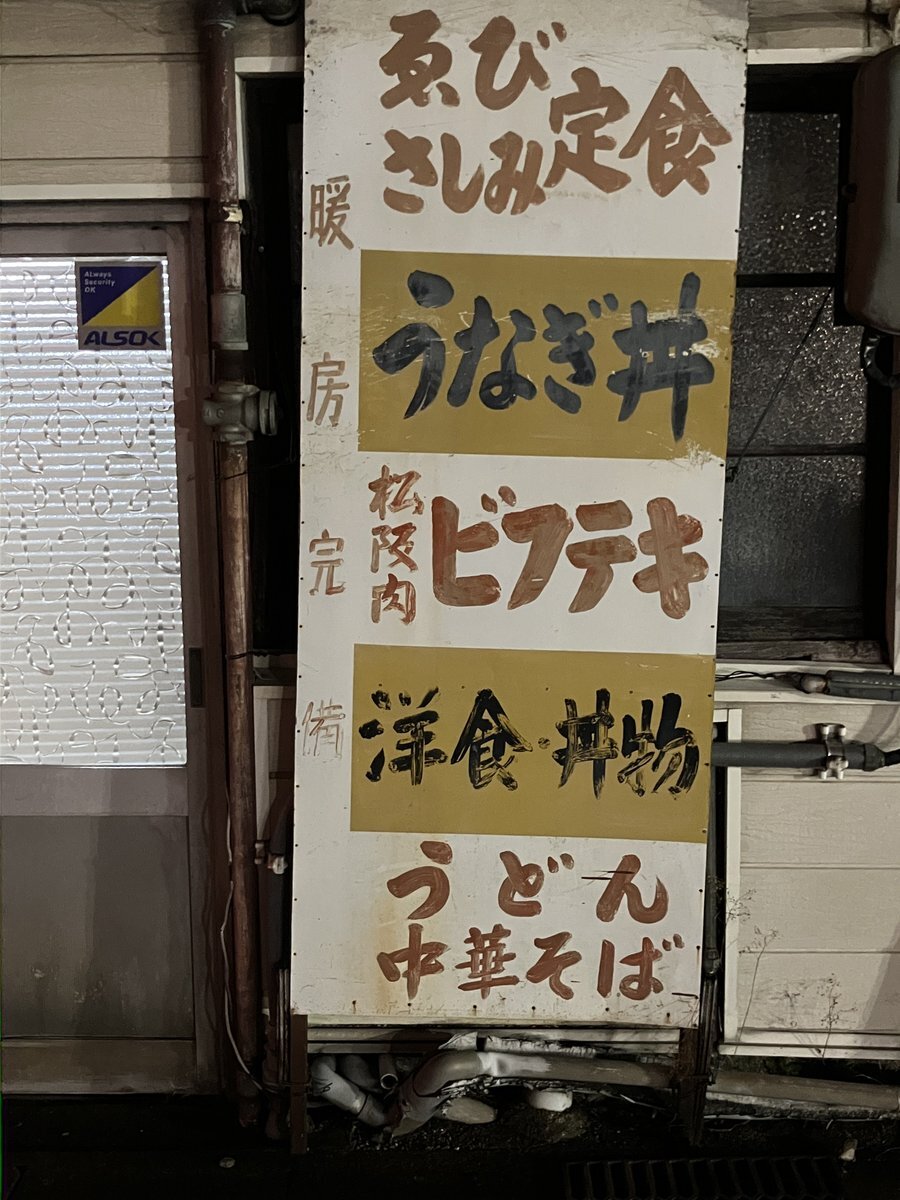 ゑび
さしみ
定食
暖房完備
うなぎ丼
松阪肉
ビフテキ
洋食・丼物
うどん
中華そば
ALways
Security
OK
ALSOK